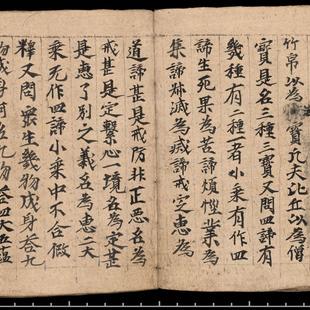 竹帛以為寶凡夫比丘以為僧
寶是名三種三寶又問四諦有
幾種有二種者小乘有作四
諦生死果為苦諦煩惱業為
集諦滅為滅諦戒定恵為
道諦甚是戒防非正惡名為
戒甚是定繫心境名為定甚
是恵了別之義名為恵二大
乘无作四諦小乘中不合假
釋又問衆生幾物成身荅九
物成身何名九物荅四大五蘊